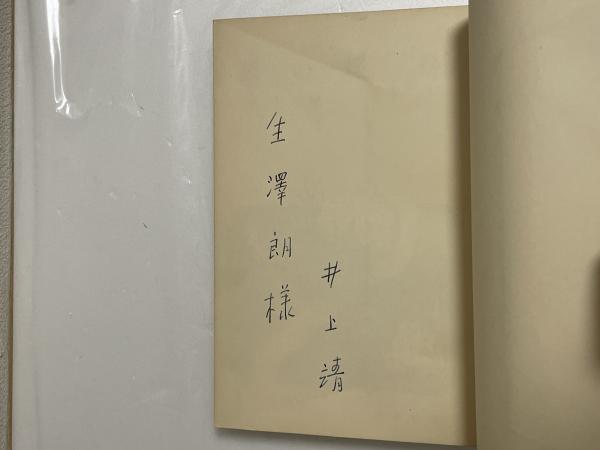 井上靖
生澤朗様